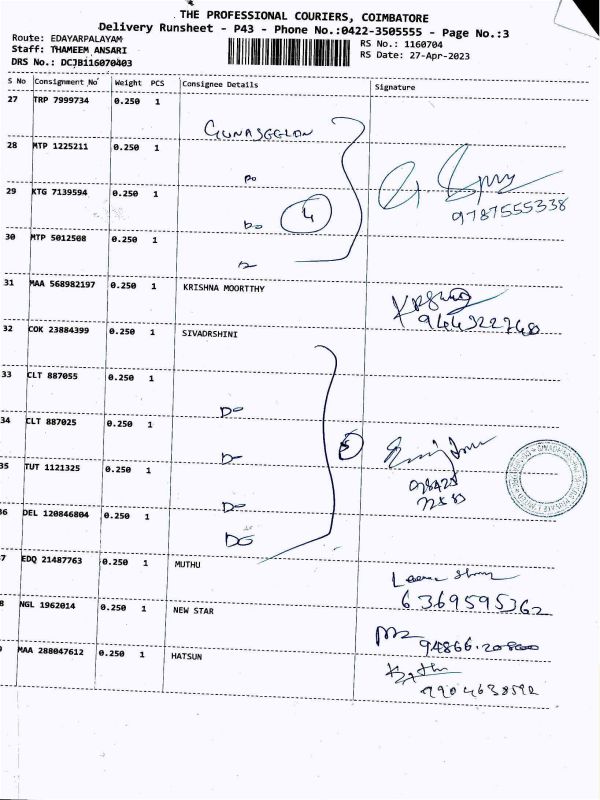 THE PROFESSIONAL COURIERS, COIMBATORE
Delivery Runsheet - P43 - Phone No.:0422-3505555 - Page No.:3
Route: EDAYARPALAYAM
Staff: THAMEEM ANSARI
DRS No.: DCJB116070403
RS No.: 1160704
RS Date: 27-Apr-2023
S No Consignment No Weight PCS Consignee Details Signature
27 TRP 7999734 0.250 1
GUNASEELON
28 MTP 1225211 0.250 1
Do
29 KTG 7139594 0.250 1
Do 4
9787555338
30 MTP 5012508 0.250 1
31 MAA 568982197 0.250 1 KRISHNA MOORTTHY
32 COK 23884399 0.250 1 SIVADRSHINI
33 CLT 887055 0.250 1
Do
34 CLT 887025 0.250 1
Do 5
35 TUT 1121325 0.250 1
Do
36 DEL 120846804 0.250 1
Do
7 EDQ 21487763 0.250 1 MUTHU
6369595362
8 NGL 1962014 0.250 1 NEW STAR
MAA 288047612 0.250 1 HATSUN